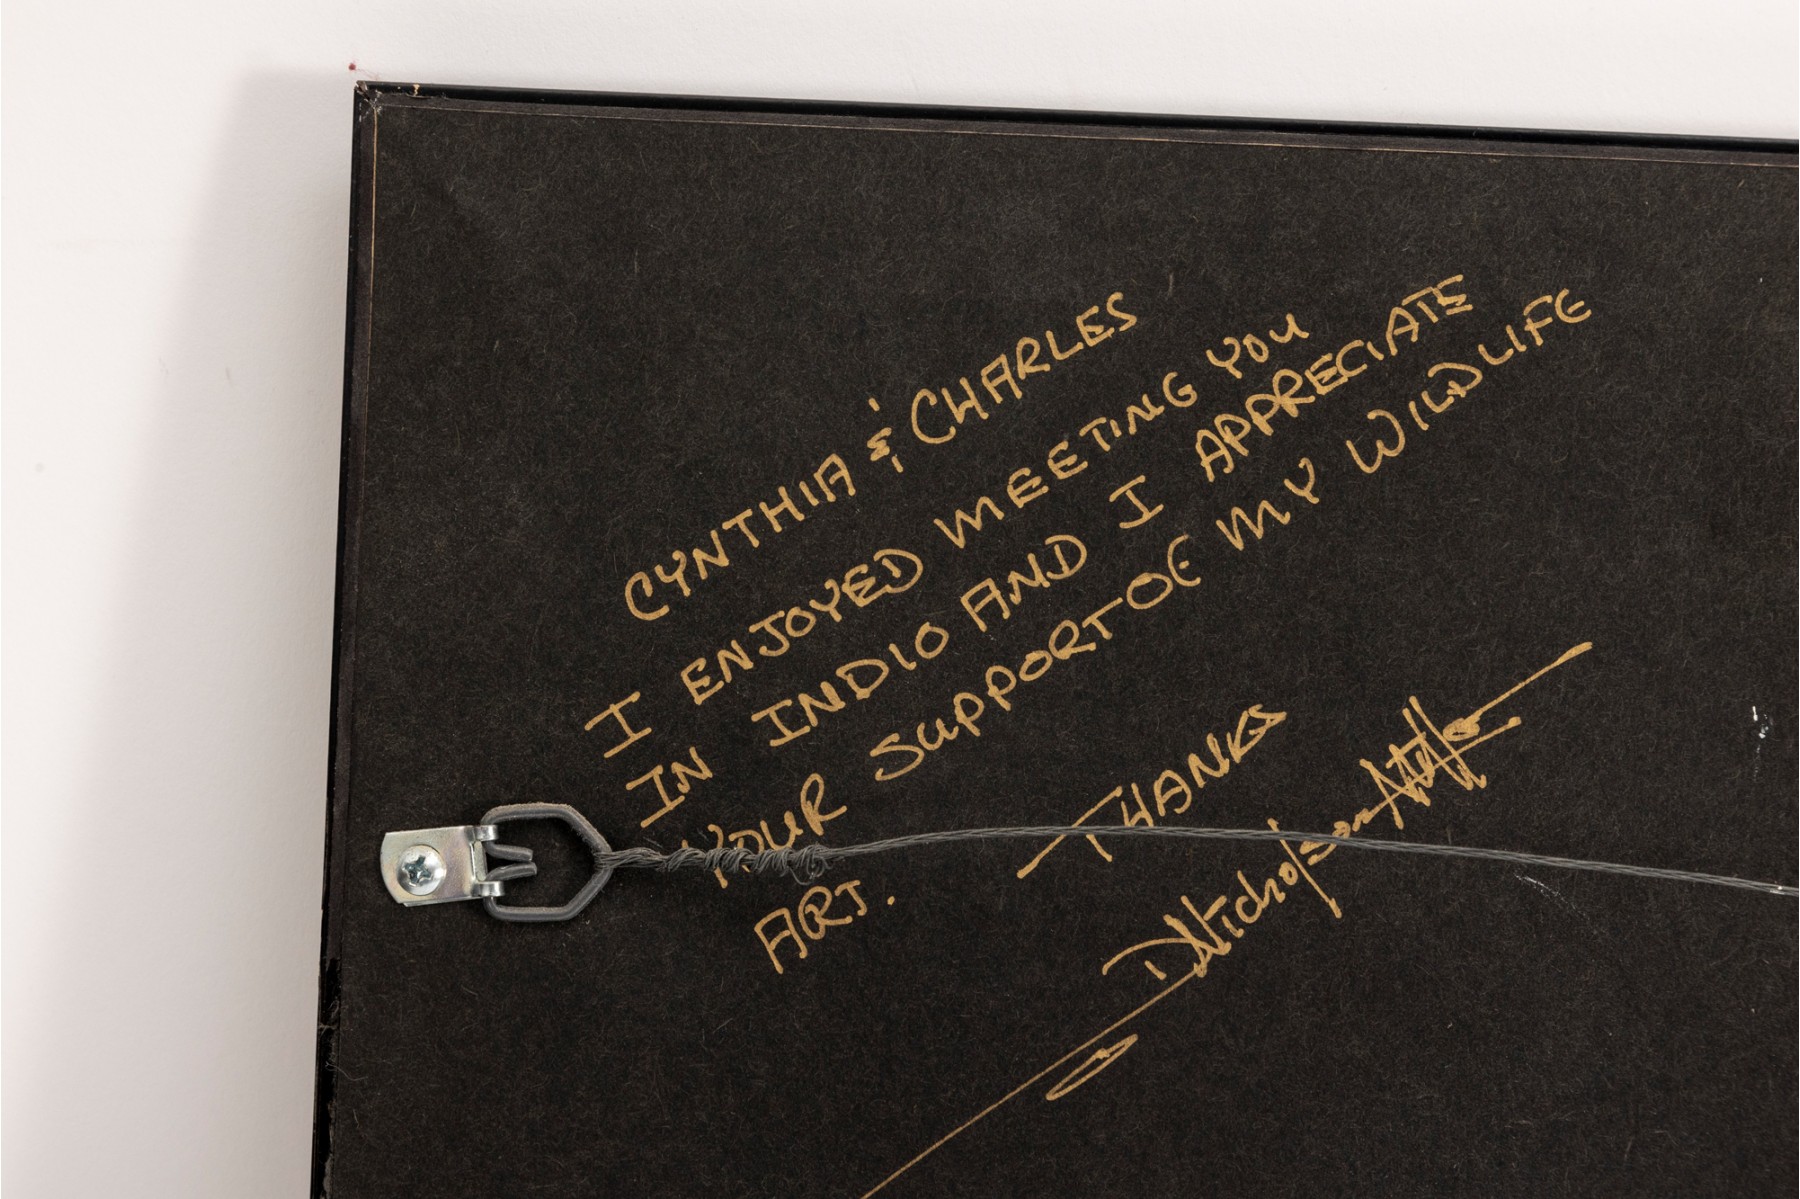 CYNTHIA & CHARLES
I ENJOYED MEETING YOU
IN INDIO AND I APPRECIATE
YOUR SUPPORT OF MY WILDLIFE
ART.
THANKS